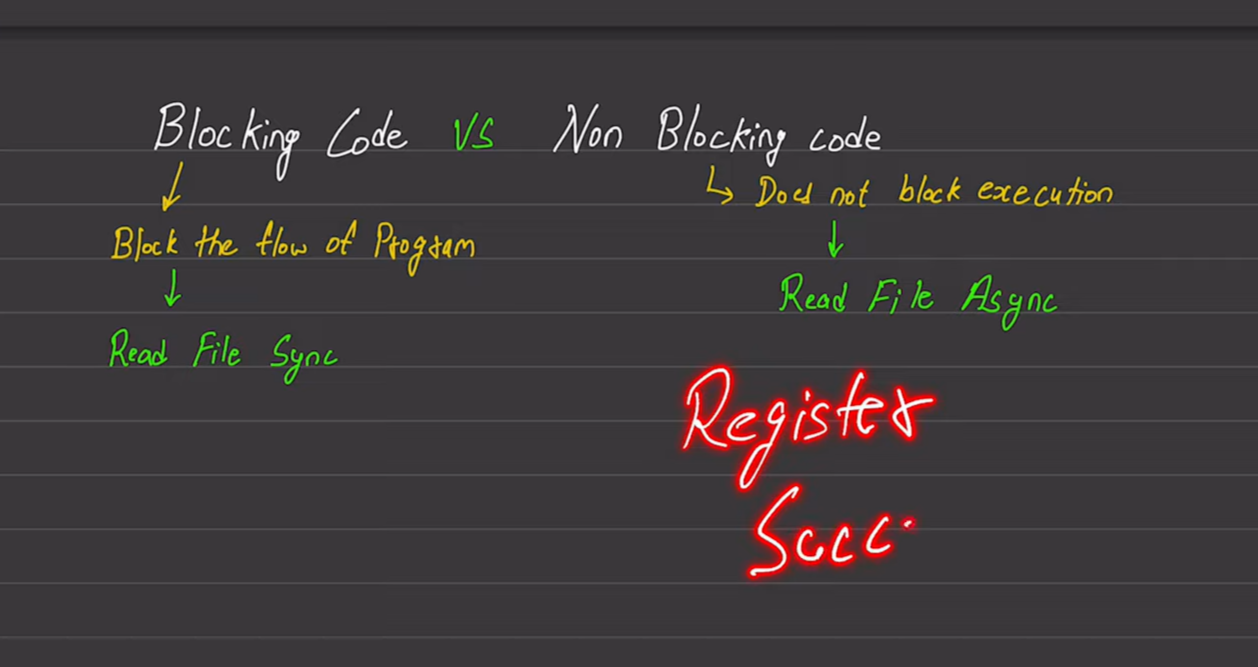 Blocking Code VS Non Blocking code
Block the flow of Program
Read File Sync
Does not block execution
Read File Async
Register
Succ